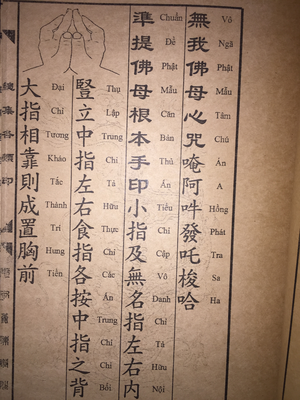 無我佛母心咒唵阿吽發吒梭哈
Vô Ngã Phật Mẫu Tâm Chú Án A Hồng Phát Tra Sa Ha
準提佛母根本手印小指及無名指左右內
Chuẩn Đề Phật Mẫu Căn Bản Thủ Ấn Tiểu Chỉ Cập Vô Danh Chỉ Tả Hữu Nội
豎立中指左右食指各按中指之背
Thụ Lập Trung Chỉ Tả Hữu Thực Chỉ Các Án Trung Chỉ Chi Bối
大指相靠則成置胸前
Đại Chỉ Tương Khảo Tắc Thành Trí Hung Tiền